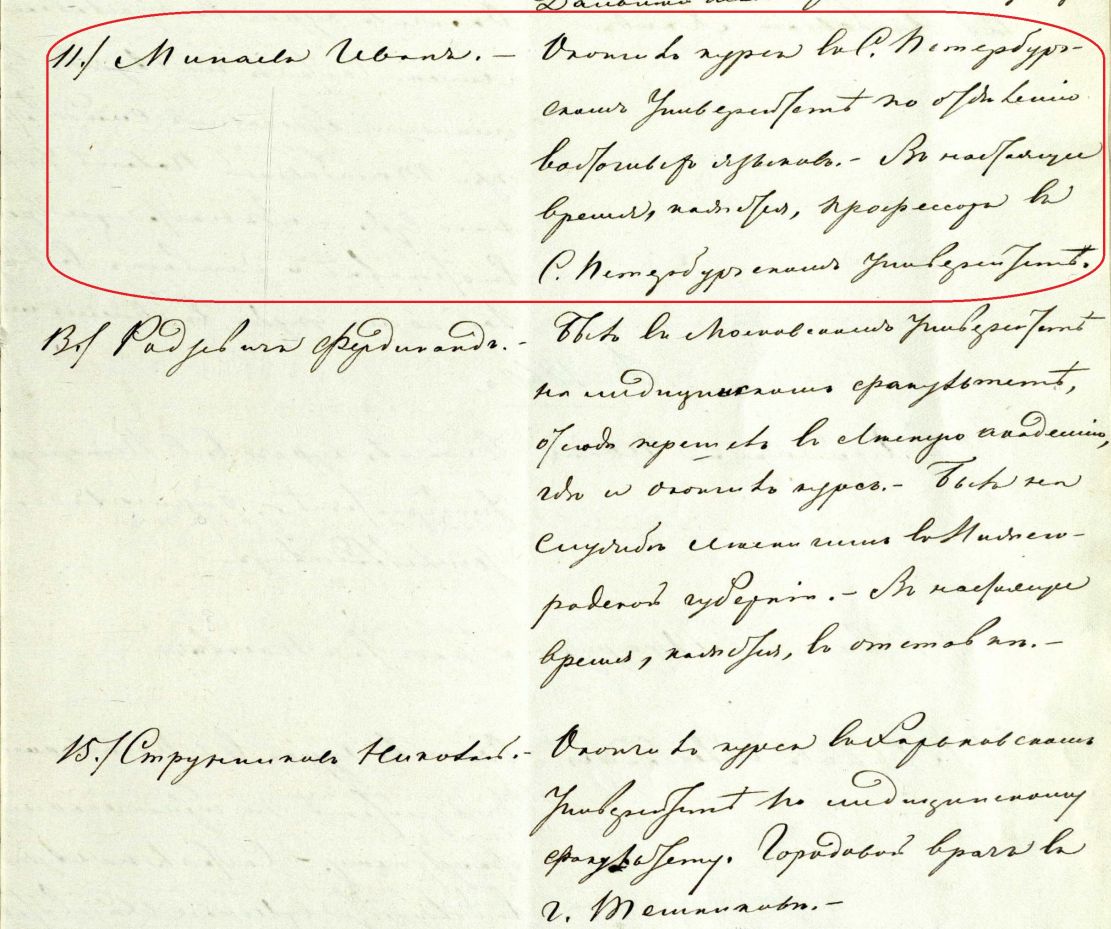 11./ Минаевъ Иванъ. – Окончилъ курсъ въ С. Петербург-
скомъ Университетѣ по отдѣленію
восточныхъ языковъ. – Въ настоящее
время, кажется, профессоръ въ
С. Петербургскомъ Университетѣ.
13./ Радзевичъ Фердинандъ. – Былъ въ Московскомъ Университетѣ
на медицинскомъ факультетѣ,
отсюда перешелъ въ Медикую академію,
гдѣ и окончилъ курсъ. – Былъ на
службѣ въ Нижего-
родской губерніи. – Въ настоящее
время, кажется, въ отставкѣ. –
15./ Струнниковъ Николай. – Окончилъ курсъ въ Харьковскомъ
Университетѣ по медицинскому
факультету. Городовой врачъ въ
г. –